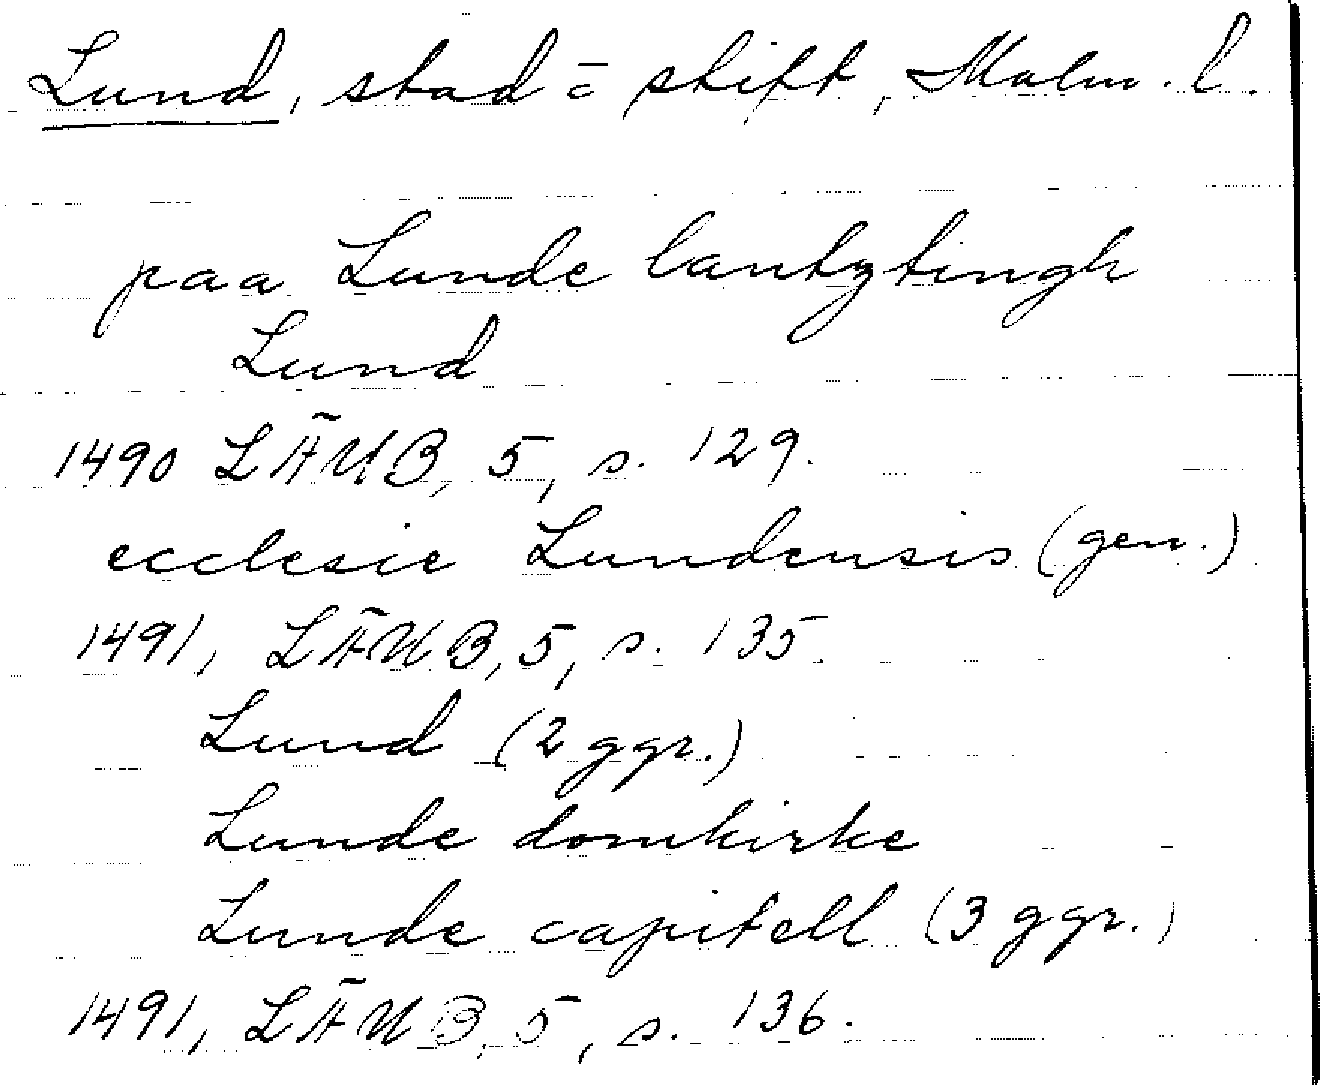 Lund, stad = stift, Malm. l.
paa Lunde lantztingh
Lund
1490 LÄUB, 5, s. 129.
ecclesie Lundensis (gen.)
1491, LÄUB, 5, s. 135.
Lund (2 ggr.)
Lunde domkirke
Lunde capitell (3 ggr.)
1491, LÄUB, 5, s. 136.